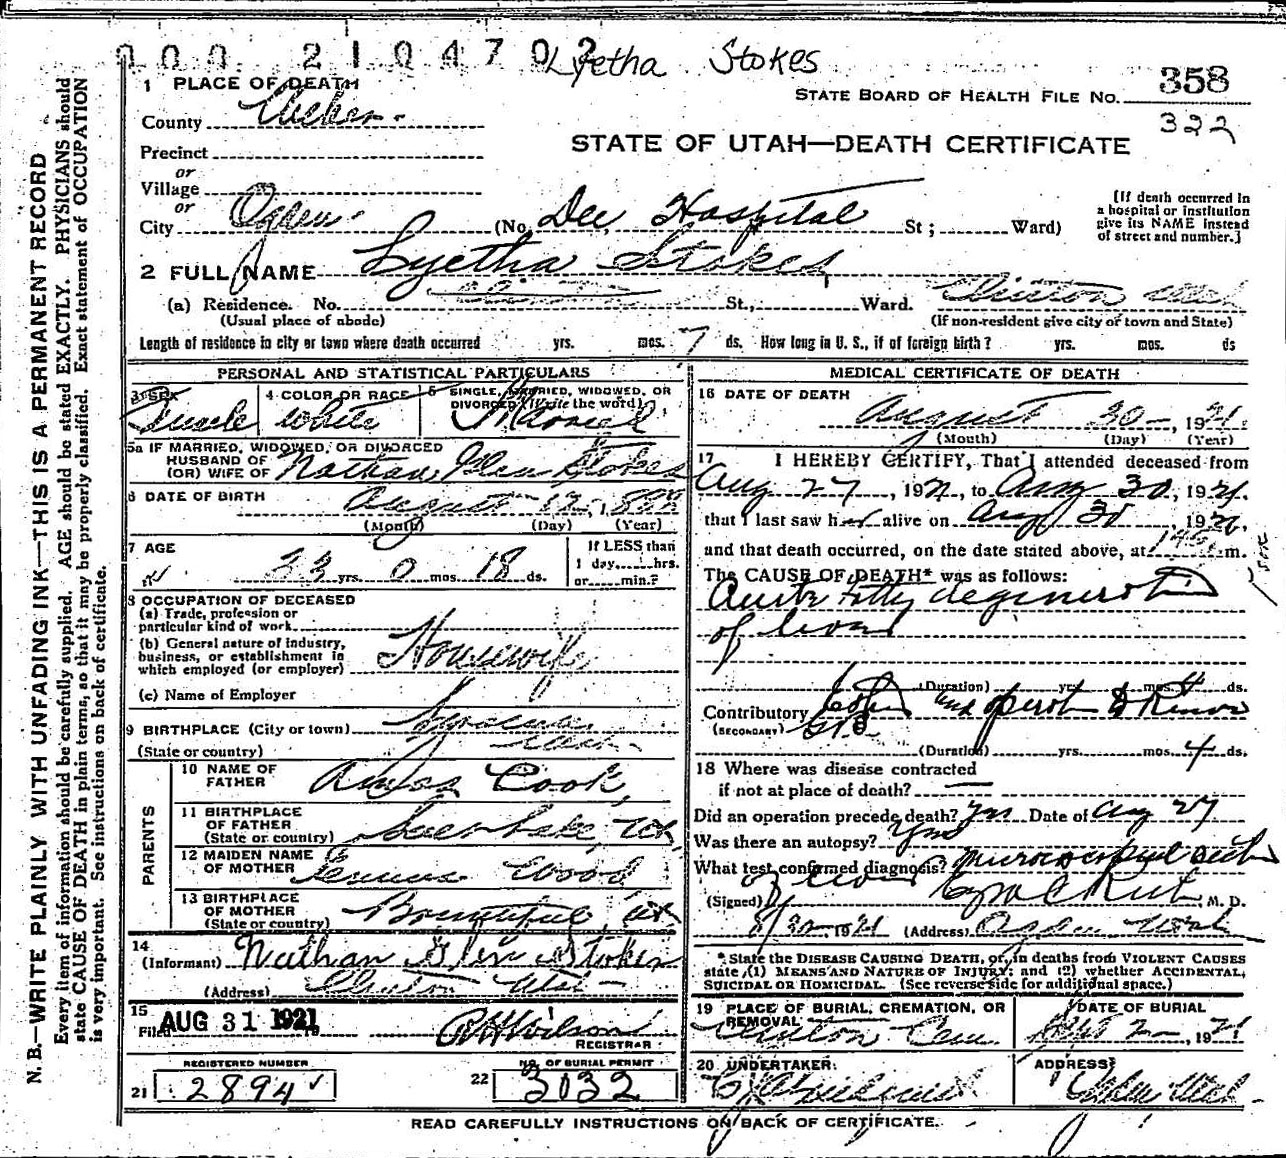 000 2104702 Lyetha Stokes
1 PLACE OF DEATH
STATE BOARD OF HEALTH FILE NO. 358
322
County Weber
STATE OF UTAH—DEATH CERTIFICATE
Precinct
or
Village
or
City Ogden (No. Dee Hospital St; Ward)
[If death occurred in
a hospital or institution
give its NAME instead
of street and number.]
2 FULL NAME Lyetha Stokes
(a) Residence. No. St., Ward. Clinton Utah
(Usual place of abode) (If non-resident give city or town and State)
Length of residence in city or town where death occurred yrs. mos. 7 ds. How long in U. S., if of foreign birth? yrs. mos. ds
PERSONAL AND STATISTICAL PARTICULARS
3 SEX Female
4 COLOR OR RACE White
5 SINGLE, MARRIED, WIDOWED, OR
DIVORCED (Write the word) Married
5a IF MARRIED, WIDOWED, OR DIVORCED
HUSBAND OF
(OR) WIFE OF Nathan Glen Stokes
6 DATE OF BIRTH August 12
(Month) (Day) (Year)
7 AGE yrs. 0 mos. 18 ds.
If LESS than
1 day, hrs.
or min.?
8 OCCUPATION OF DECEASED
(a) Trade, profession or
particular kind of work
(b) General nature of industry,
business, or establishment in
which employed (or employer) Housewife
(c) Name of Employer
9 BIRTHPLACE (City or town) Syracuse
(State or country) Utah
PARENTS
10 NAME OF
FATHER Cook
11 BIRTHPLACE
OF FATHER
(State or country)
12 MAIDEN NAME
OF MOTHER Wood
13 BIRTHPLACE
OF MOTHER
(State or country) Bountiful, Ut
14
(Informant) Nathan Glen Stokes
(Address) Clinton Utah
15
Filed AUG 31 1921 Wilson
REGISTRAR
REGISTERED NUMBER
21 2894
NO. OF BURIAL PERMIT
22 3032
MEDICAL CERTIFICATE OF DEATH
16 DATE OF DEATH
August 30, 1921
(Month) (Day) (Year)
17 I HEREBY CERTIFY, That I attended deceased from
Aug 27, 1921, to Aug 30, 1921.
that I last saw her alive on Aug 30 192
and that death occurred, on the date stated above, at m.
The CAUSE OF DEATH* was as follows:
Acute Fatty degeneration
of liver
(Duration) yrs. mos. 4 ds.
Contributory
(SECONDARY)
(Duration) yrs. mos. 4 ds.
18 Where was disease contracted
if not at place of death?
Did an operation precede death? Yes Date of Aug 27
Was there an autopsy? Yes
What test confirmed diagnosis? microscopical section
of liver
(Signed) M. D.
8/30, 1921 (Address) Ogden Utah
* State the DISEASE CAUSING DEATH, or, in deaths from VIOLENT CAUSES
state (1) MEANS AND NATURE OF INJURY; and (2) whether ACCIDENTAL,
SUICIDAL OR HOMICIDAL. (See reverse side for additional space.)
19 PLACE OF BURIAL, CREMATION, OR
REMOVAL Clinton Cem.
DATE OF BURIAL
Sept 2, 1921
20 UNDERTAKER:
ADDRESS
Ogden Utah
READ CAREFULLY INSTRUCTIONS ON BACK OF CERTIFICATE.
N. B.—WRITE PLAINLY WITH UNFADING INK—THIS IS A PERMANENT RECORD
Every item of information should be carefully supplied. AGE should be stated EXACTLY. PHYSICIANS should
state CAUSE OF DEATH in plain terms, so that it may be properly classified. Exact statement of OCCUPATION
is very important. See instructions on back of certificate.